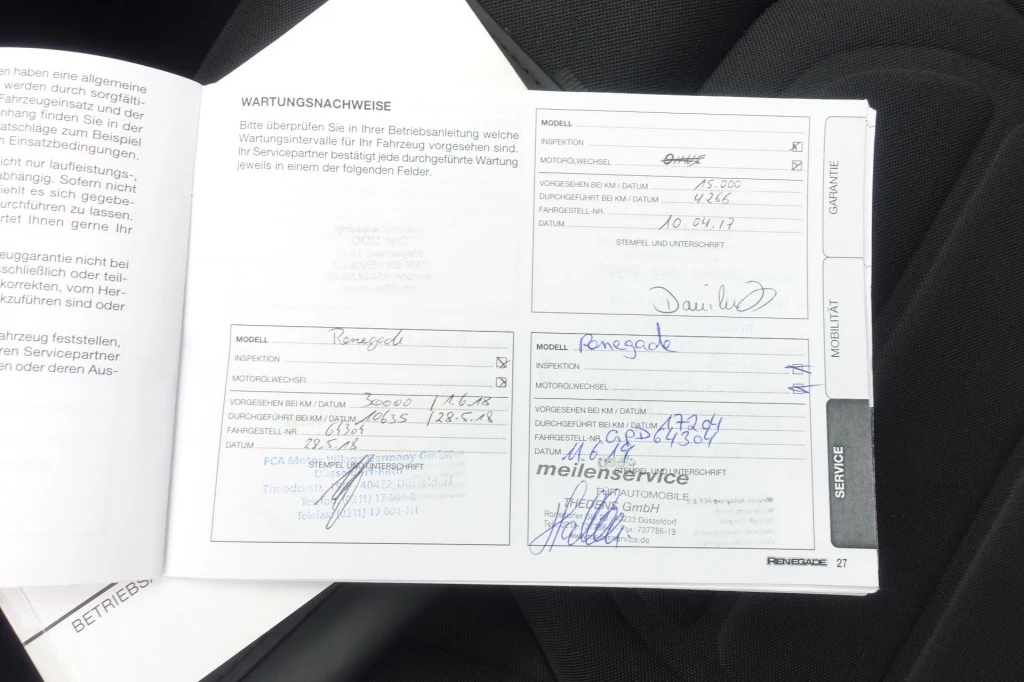 en haben eine allgemeine
werden durch sorgfälti-
Fahrzeugeinsatz und der
nhang finden Sie in der
atschläge zum Beispiel
n Einsatzbedingungen.
icht nur laufleistungs-,
abhängig. Sofern nicht
iehlt es sich gegebe-
urchführen zu lassen.
rtet Ihnen gerne Ihr
euggarantie nicht bei
sschließlich oder teil-
korrekten, vom Her-
kzuführen sind oder
ahrzeug feststellen,
ren Servicepartner
en oder deren Aus-
WARTUNGSNACHWEISE
Bitte überprüfen Sie in Ihrer Betriebsanleitung welche
Wartungsintervalle für Ihr Fahrzeug vorgesehen sind.
Ihr Servicepartner bestätigt jede durchgeführte Wartung
jeweils in einem der folgenden Felder.
MODELL
INSPEKTION
MOTORÖLWECHSEL
VORGESEHEN BEI KM / DATUM 15.000
DURCHGEFÜHRT BEI KM / DATUM 4266
FAHRGESTELL-NR.
DATUM 10.04.17
STEMPEL UND UNTERSCHRIFT
MODELL Renegade
INSPEKTION
MOTORÖLWECHSEL
VORGESEHEN BEI KM / DATUM 30000 / 1.6.18
DURCHGEFÜHRT BEI KM / DATUM 10635 / 28-5.18
FAHRGESTELL-NR. 64304
DATUM 28.5.18
STEMPEL UND UNTERSCHRIFT
FCA Motor Village Germany GmbH
Düsseldorf-Rath
Theodorstr. 40472 Düsseldorf
MODELL Renegade
INSPEKTION
MOTORÖLWECHSEL
VORGESEHEN BEI KM / DATUM
DURCHGEFÜHRT BEI KM / DATUM 17204
FAHRGESTELL-NR. GPD64304
DATUM 11.6.19
STEMPEL UND UNTERSCHRIFT
meilenservice
FÜR AUTOMOBILE
THEDENS GmbH
Düsseldorf
Fax: 737766-19
GARANTIE
MOBILITÄT
SERVICE
RENEGADE 27
BETRIEBS